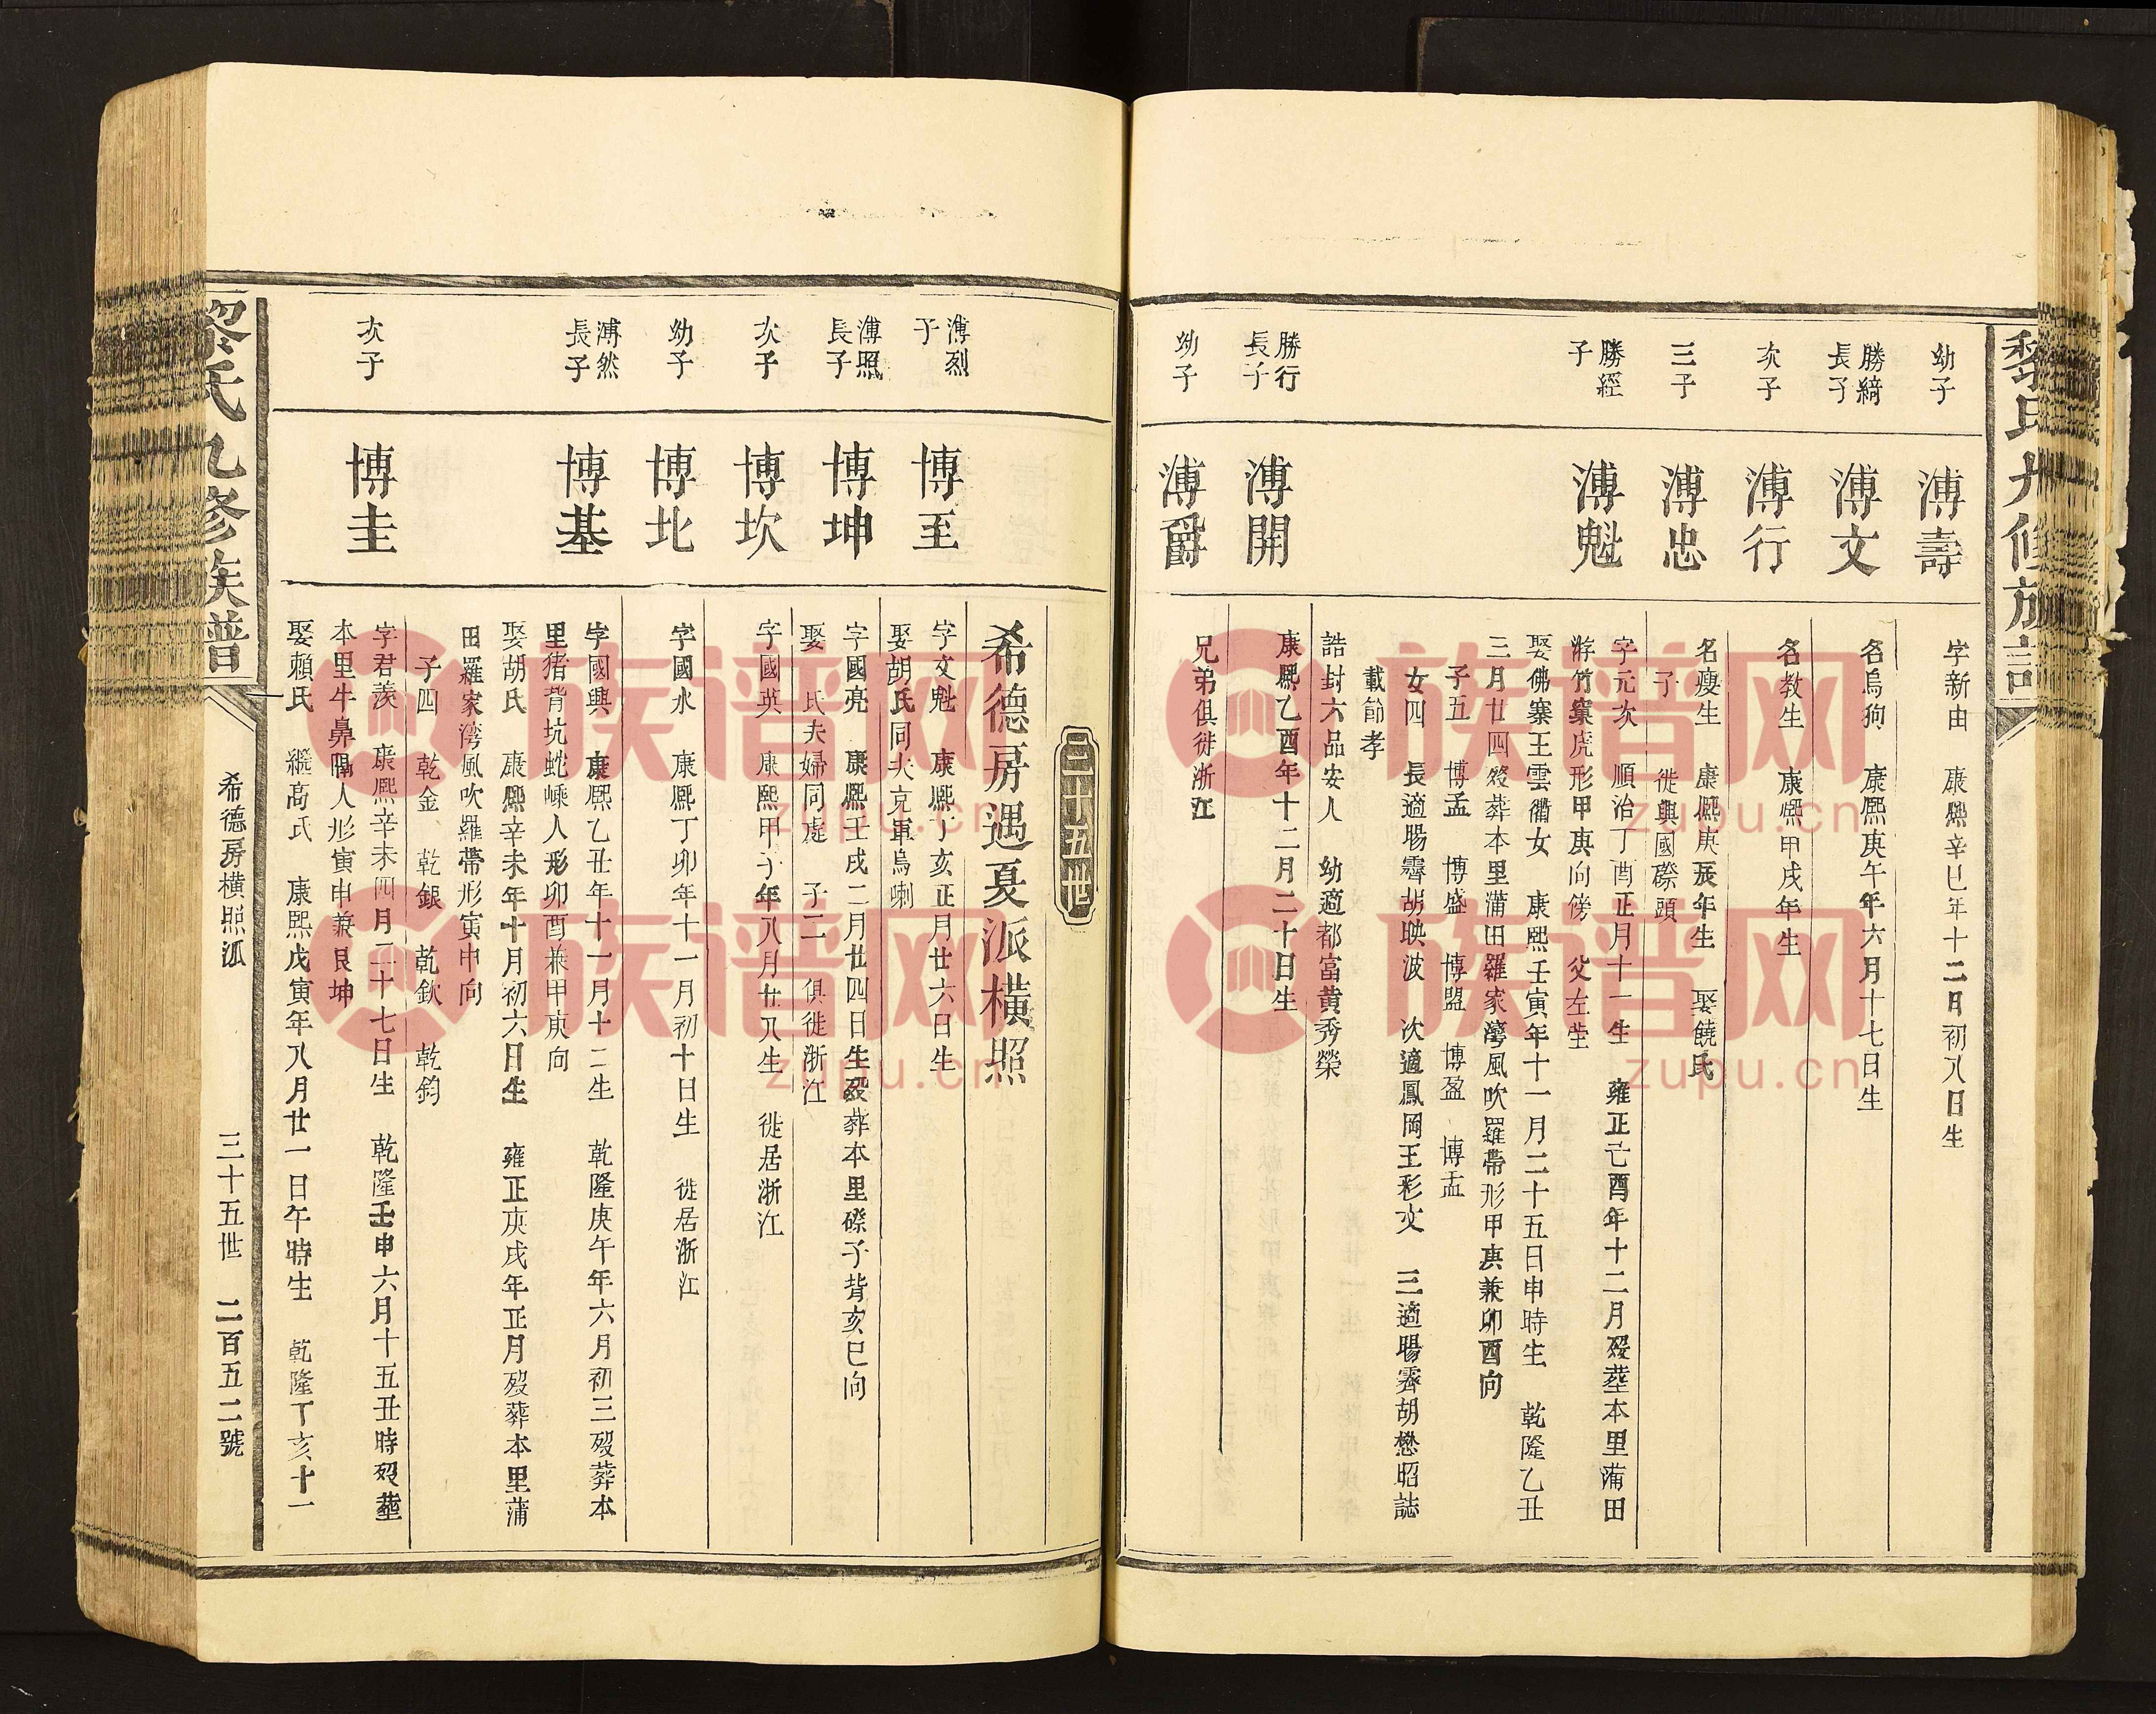 黎氏九修族譜
幼子
溥壽
字新由　康熙辛巳年十二月初八日生
勝綺長子
溥文
名烏狗　康熙庚午年六月十七日生
次子
溥行
名教生　康熙甲戌年生
三子
溥忠
名瘦生　康熙庚辰年生　娶饒氏
子　徙興國磜頭
勝經子
溥魁
字元次　順治丁酉正月十一生　雍正己酉年十二月歿塟本里蒲田
游竹窠虎形甲庚向傍父左塋
娶佛寨王雲衢女　康熙壬寅年十一月二十五日申時生　乾隆乙丑
三月廿四歿葬本里蒲田羅家灣風吹羅帶形甲庚兼卯酉向
子五　博孟　博盛　博盟　博盈　博盂
女四　長適暘霽胡映波　次適鳳岡王彩文　三適暘霽胡懋昭誌
載節孝
誥封六品安人　幼適都富黄秀榮
勝行長子
溥開
康熙乙酉年十二月二十日生
幼子
溥爵
兄弟俱徙浙江
三十五世
希德房遇夏派橫照
溥烈子
博至
字文魁　康熙丁亥正月廿六日生
娶胡氏同夫充軍烏喇
溥照長子
博坤
字國亮　康熙壬戌二月廿四日生歿葬本里磜子背亥巳向
娶　氏夫婦同處　子二　俱徙浙江
次子
博坎
字國英　康熙甲子年八月廿八生　徙居浙江
幼子
博北
字國水　康熙丁卯年十一月初十日生　徙居浙江
溥然長子
博基
字國興　康熙乙丑年十一月十二生　乾隆庚午年六月初三歿葬本
里猪背坑蛇嵊人形卯酉兼甲庚向
娶胡氏　康熙辛未年十月初六日生　雍正庚戌年正月歿葬本里蒲
田羅家湾風吹羅帶形寅申向
子四　乾金　乾銀　乾欽　乾鈞
次子
博圭
字君羨　康熙辛未四月二十七日生　乾隆壬申六月十五丑時歿塟
本里牛鼻隔人形寅申兼艮坤
娶賴氏　繼高氏　康熙戊寅年八月廿一日午時生　乾隆丁亥十一
黎氏九修族譜
希德房橫照派　三十五世　二百五二號
族谱网
zupu.cn
族谱网
zupu.cn
族谱网
zupu.cn
族谱网
zupu.cn